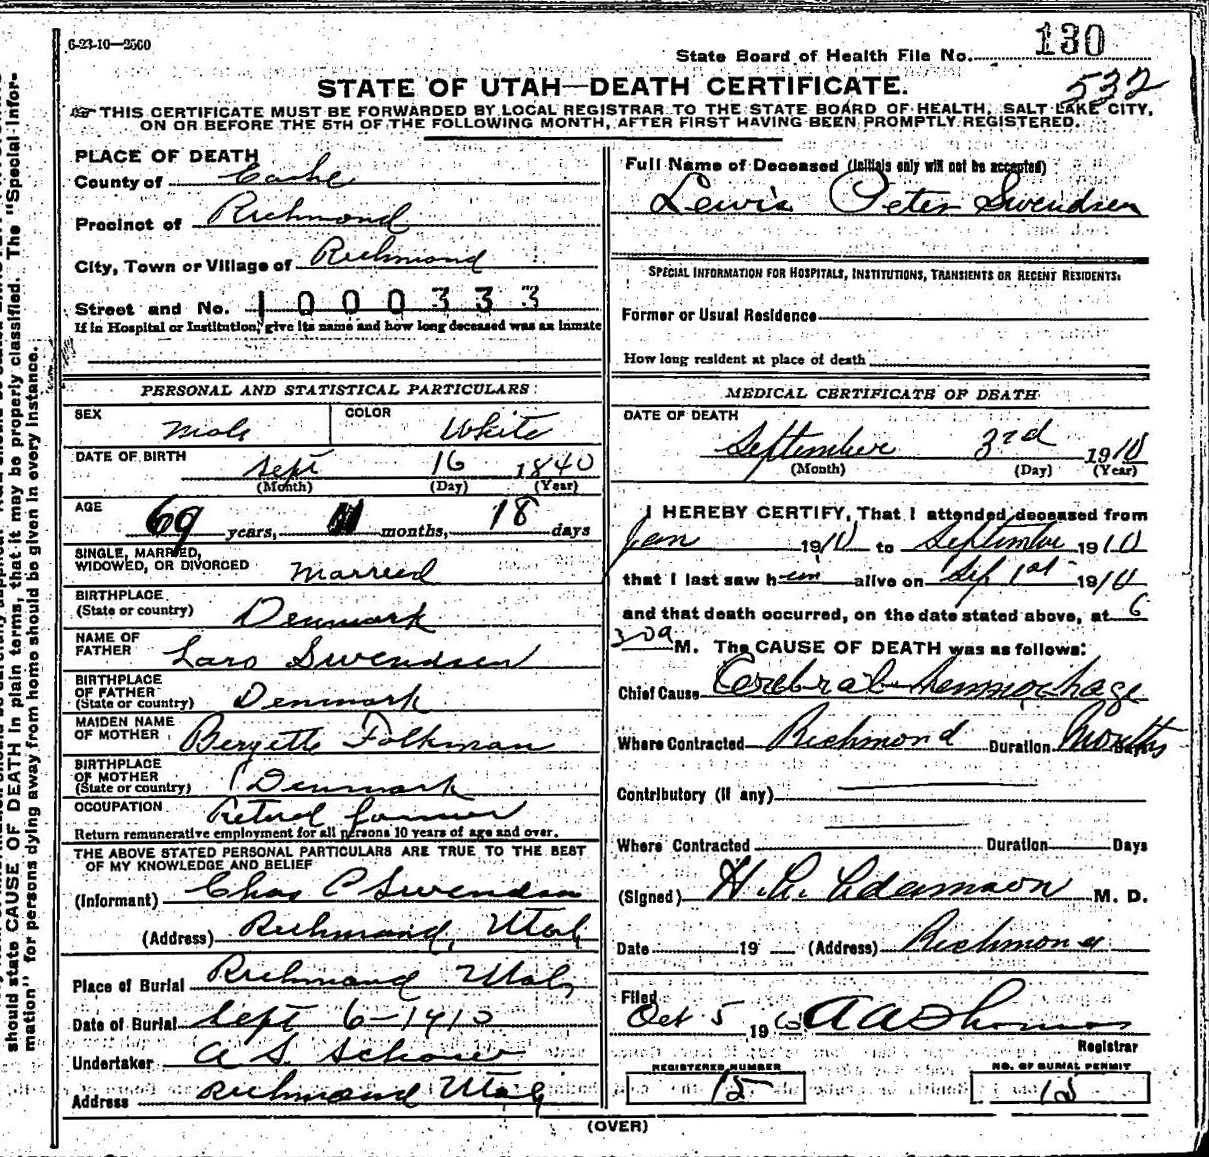 6-23-10—2560
State Board of Health File No. 130
532
STATE OF UTAH—DEATH CERTIFICATE.
THIS CERTIFICATE MUST BE FORWARDED BY LOCAL REGISTRAR TO THE STATE BOARD OF HEALTH, SALT LAKE CITY,
ON OR BEFORE THE 5TH OF THE FOLLOWING MONTH, AFTER FIRST HAVING BEEN PROMPTLY REGISTERED.
PLACE OF DEATH
County of Cache
Precinct of Richmond
City, Town or Village of Richmond
Street and No. 1000333
If in Hospital or Institution, give its name and how long deceased was an inmate
PERSONAL AND STATISTICAL PARTICULARS
SEX Male COLOR White
DATE OF BIRTH Sept 16 1840
(Month) (Day) (Year)
AGE 69 years, 11 months, 18 days
SINGLE, MARRIED,
WIDOWED, OR DIVORCED Married
BIRTHPLACE
(State or country) Denmark
NAME OF
FATHER Lars Swendsen
BIRTHPLACE
OF FATHER
(State or country) Denmark
MAIDEN NAME
OF MOTHER Bergette Folkman
BIRTHPLACE
OF MOTHER
(State or country) Denmark
OCCUPATION Retired farmer
Return remunerative employment for all persons 10 years of age and over.
THE ABOVE STATED PERSONAL PARTICULARS ARE TRUE TO THE BEST
OF MY KNOWLEDGE AND BELIEF
(Informant) Chas P Swendsen
(Address) Richmond, Utah
Place of Burial Richmond Utah
Date of Burial Sept 6-1910
Undertaker A S Schow
Address Richmond Utah
Full Name of Deceased (Initials only will not be accepted)
Lewis Peter Swendsen
SPECIAL INFORMATION FOR HOSPITALS, INSTITUTIONS, TRANSIENTS OR RECENT RESIDENTS:
Former or Usual Residence
How long resident at place of death
MEDICAL CERTIFICATE OF DEATH
DATE OF DEATH
September 3rd 1910
(Month) (Day) (Year)
I HEREBY CERTIFY, That I attended deceased from
Jan 1910 to September 1910
that I last saw him alive on Sep 1st 1910
and that death occurred, on the date stated above, at 6
30a M. The CAUSE OF DEATH was as follows:
Chief Cause Cerebral hemmorhage
Where Contracted Richmond Duration Months Days
Contributory (if any)
Where Contracted Duration Days
(Signed) Adamson M. D.
Date 19 (Address) Richmond
Filed
Oct 5 1910 A A Thomas
Registrar
REGISTERED NUMBER
15
NO. OF BURIAL PERMIT
15
(OVER)
should state CAUSE OF DEATH in plain terms, that it may be properly classified. The "Special Infor-
mation" for persons dying away from home should be given in every instance.